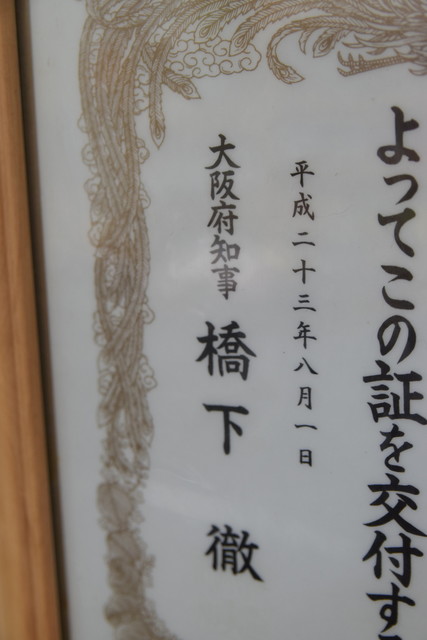 よってこの証を交付す
平成二十三年八月一日
大阪府知事 橋下 徹